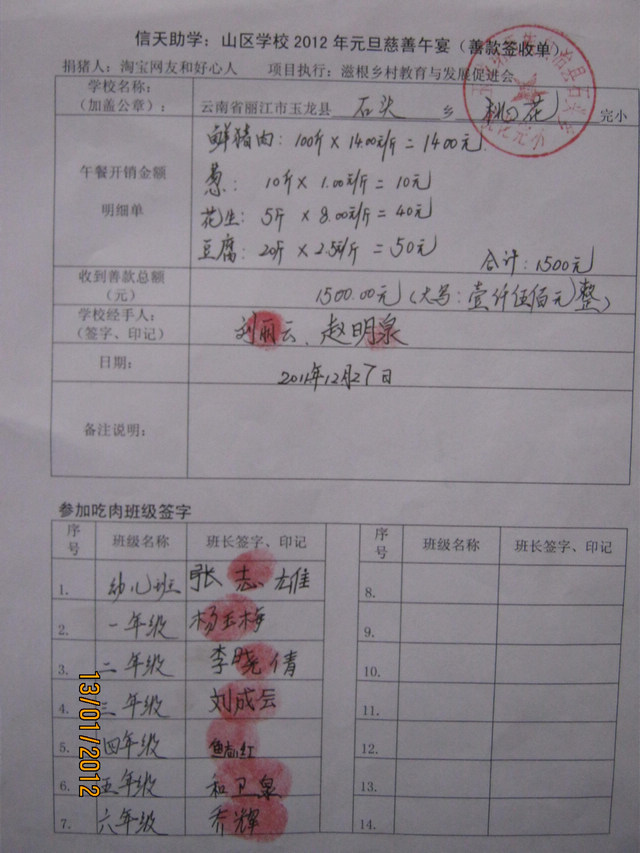 信天助学：山区学校 2012 年元旦慈善午宴（善款签收单）
捐猪人：淘宝网友和好心人 项目执行：滋根乡村教育与发展促进会
学校名称：
（加盖公章）：
云南省丽江市玉龙县 石头 乡 桃花 完小
午餐开销金额
明细单
鲜猪肉：100斤 × 14.00元/斤 = 1400元
葱：10斤 × 1.00元/斤 = 10元
花生：5斤 × 8.00元/斤 = 40元
豆腐：20斤 × 2.5元/斤 = 50元
合计：1500元
收到善款总额
（元）
1500.00元（大写：壹仟伍佰元整）
学校经手人：
（签字、印记）
刘丽云、赵明泉
日期：
2011年12月27日
备注说明：
参加吃肉班级签字
序号 班级名称 班长签字、印记 序号 班级名称 班长签字、印记
1. 幼儿班 张志雄 8.
2. 一年级 杨玉梅 9.
3. 二年级 李晓倩 10.
4. 三年级 刘成云 11.
5. 四年级 红 12.
6. 五年级 和卫泉 13.
7. 六年级 乔辉 14.
13/01/2012